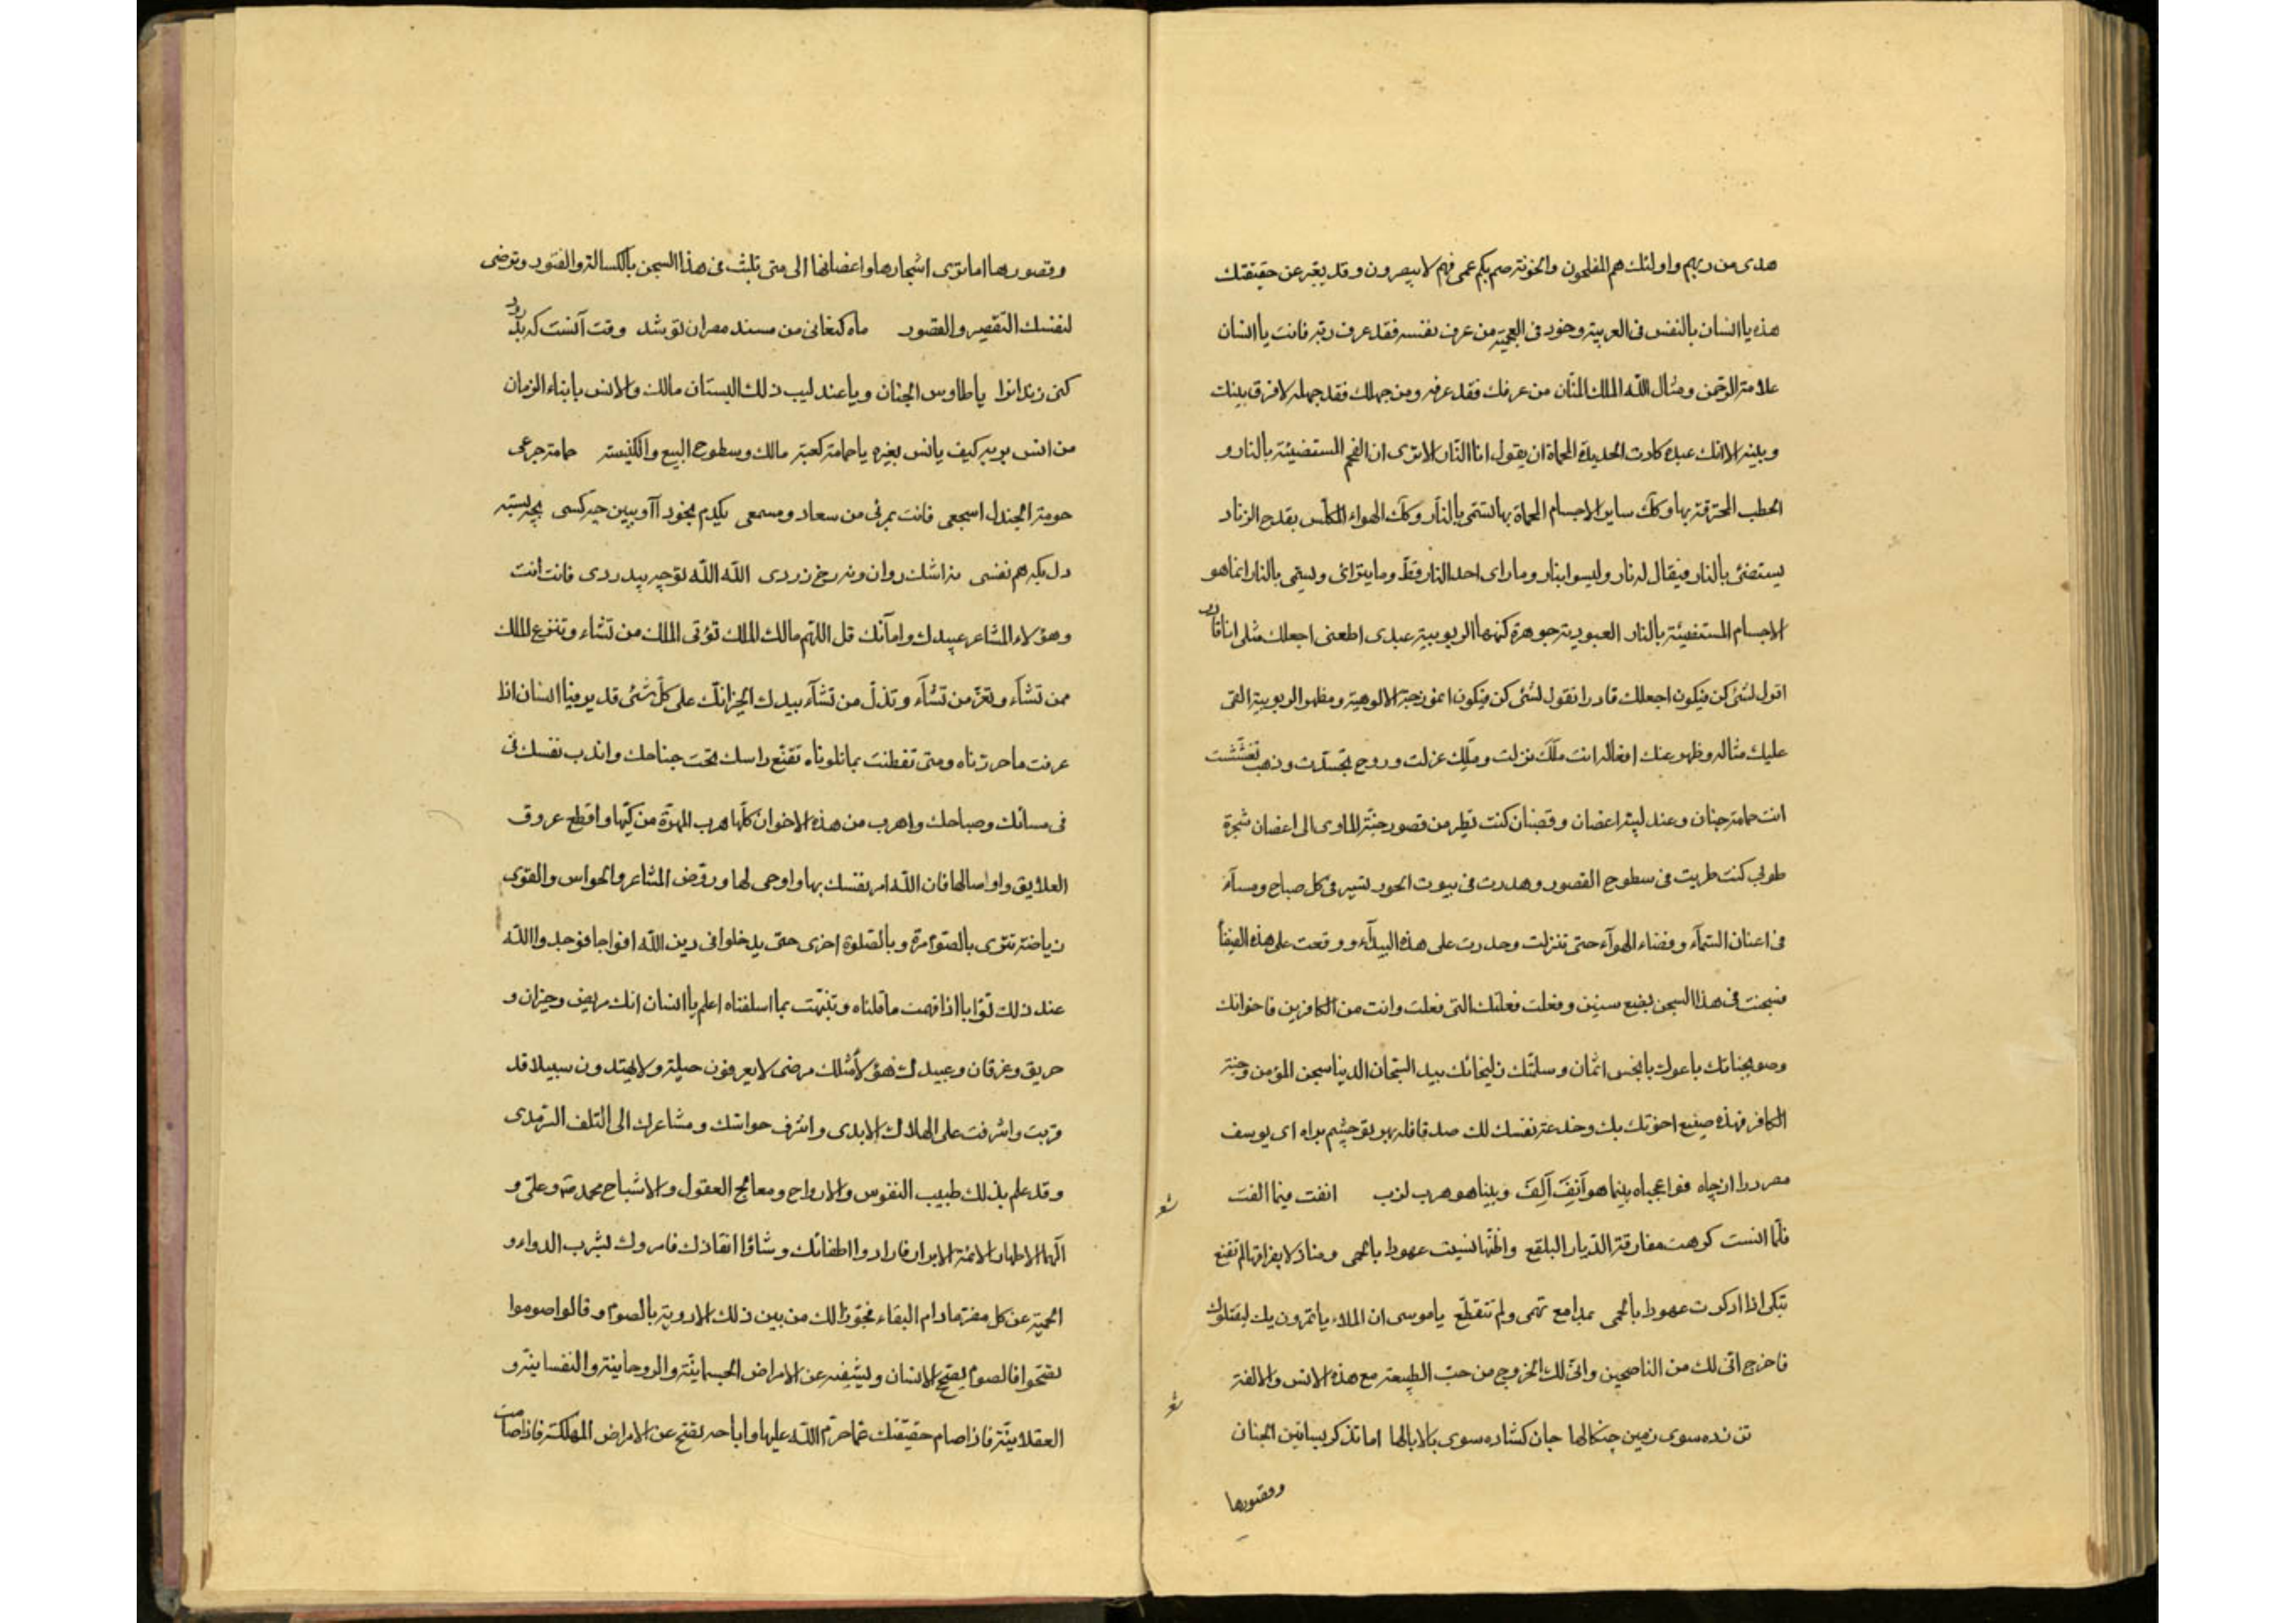 هدى من ربهم واولئك هم المفلحون واخوته صم بكم عمى فهم لا يبصرون وقد يعبّر عن حقيقتك
هذه يا انسان بالنفس فى العربية وخود فى العجمية من عرف نفسه فقد عرف ربّه فانت يا انسان
علامة الرحمن ومثال الله الملك المنّان من عرفك فقد عرفه ومن جهلك فقد جهله لا فرق بينك
وبينه الا انك عبده كادت الحديدة المحماة ان يقول انا النار الا ترى ان الفحم المستضيئة بالنار و
الحطب المحترقة بها وكك ساير الاجسام المحماة بها تسمّى بالنار وكك الهواء بقدح الزناد
يستضئ بالنار فيقال له نار وليسوا بنار وما راى احد النار قطّ وما يترائى ويسمّى بالنار انما هو
الاجسام المستضيئة بالنار العبودية جوهرة كنهها الربوبية عبدى اطعنى اجعلك مثلى انا قادر
اقول لشئ كن فيكون اجعلك قادرا تقول لشئ كن فيكون الالوهية ومظهر الربوبية القى
عليك مثاله وظهر عنك افعاله انت ملَك نزلت وملِك عزلت وروح تجسّدت وذهب
انت حمامة جنان وعندليب اغصان وقضبان كنت تطير من قصور جنّة الماوى الى اغصان شجرة
طوبى كنت طربت فى سطوح القصور وهدرت فى بيوت الحور تسير فى كل صباح ومسآء
فى اعنان السّمآء وفضاء الهوآء حتى تنزلت وحدرت على هذه البيدآء ووقعت على هذه
فسجنت فى هذا السجن بضع سنين وفعلت فعلتك التى فعلت وانت من الكافرين فاخوانك
باعوك بابخس اثمان وسلّمتك زليخائك بيد السّجان الدنيا سجن المؤمن وجنّة
الكافر فهذه صنيع اخوتك بك وخدعة نفسك لك صد قافله بهر تو چشم براه اى يوسف
مصر درا از چاه فوا عجباه بينما هو آنِفَ اَلِفَ وبينا هو هرب لزب انفت فيما الفت
فلّما انست كرهت مفارقة الديار البلقع واظنّها نسيت عهودا بالحمى ومنازلا بفراقها لم تقنع
تبكى اذا ادكرت عهودا بالحمى بمدامع تهمى ولم تتقطّع ياموسى ان الملاء ياتمرون بك ليقتلوك
فاخرج انى لك من الناصحين وانّى لك الخروج من حبّ الطبيعة مع هذه الانس والالفة
تن زده سوى زمين چنكالها جان كشاده سوى بالا بالها اما تذكر بساتين الجنان
وقصورها
وقصورها اما ترى اشجارها واغصانها الى متى تلبث فى هذا السجن بالكسالة والفتور وترضى
لنفسك التقصير والقصور ماه كنعانى من مسند مصر ان تو شد وقت آنست كه بدرود
كنى زندانرا يا طاوس الجنان ويا عندليب ذلك البستان مالك والانس بابناء الزمان
من انس بربه كيف يانس بغيره يا حمامة كعبة مالك وسطوح البيع والكنيسة حمامة جرعى
حومة الجندل اسجعى فانت بمرئى من سعاد ومسمعى يكدم بخود آ وببين چه كسى بچه بسته
دل بكه هم نفسى نه اشك روان ونه رخ زردى الله الله تو چه بيدردى فانت انت
وهؤلاء المشاعر عبيدك وامآئك قل اللّهم مالك الملك تؤتى الملك من تشاء وتنزع الملك
ممن تشآء وتعزّ من تشآء وتذلّ من تشآء بيدك الخير انّك على كلّ شئ قدير فيا انسان اذا
عرفت ما حررناه ومتى تفطنت بما تلوناه تقنّع راسك تحت جناحك واندب نفسك فى
فى مسائك وصباحك واهرب من هذه الاخوان كلّها هرب الهرّة من كلبها واقطع عروق
العلايق واوصالها فان الله امر نفسك بها واوحى لها وروّض المشاعر والحواس والقوى
رياضة تقوى بالصوم مرة وبالصّلوة اخرى حتى يدخلوا فى دين الله افواجا فوجدوا الله
عند ذلك توّابا اذا فهمت ما قلناه وتنبّهت بما اسلفناه اعلم يا انسان انك مريض وحيران و
حريق وغرقان وعبيدك هؤلاء مثلك مرضى لا يعرفون حيلة ولا يهتدون سبيلا قد
قربت واشرفت على الهلاك الابدى واشرف حواسك ومشاعرك الى التلف السّرمدى
وقد علم بذلك طبيب النفوس والارواح ومعالج العقول والاشباح محمد ص وعلىّ و
آلهما الاطهار الائمة الابرار فارادوا اطفائك وشاؤا انقاذك فامروك بشرب الدواء و
الحمية عن كل مضرّ مادام البقاء فجوّزا لك من بين ذلك الادوية بالصوم وقالوا صوموا
تصحّوا فالصوم يصحّ الانسان ويشفيه عن الامراض الجسمانيّة والروحانيّة والنفسانيّة و
العقلانيّة فاذا صام حقيقتك عما حرّم الله عليها واباحه تصحّ عن الامراض المهلكة فاذا صامت